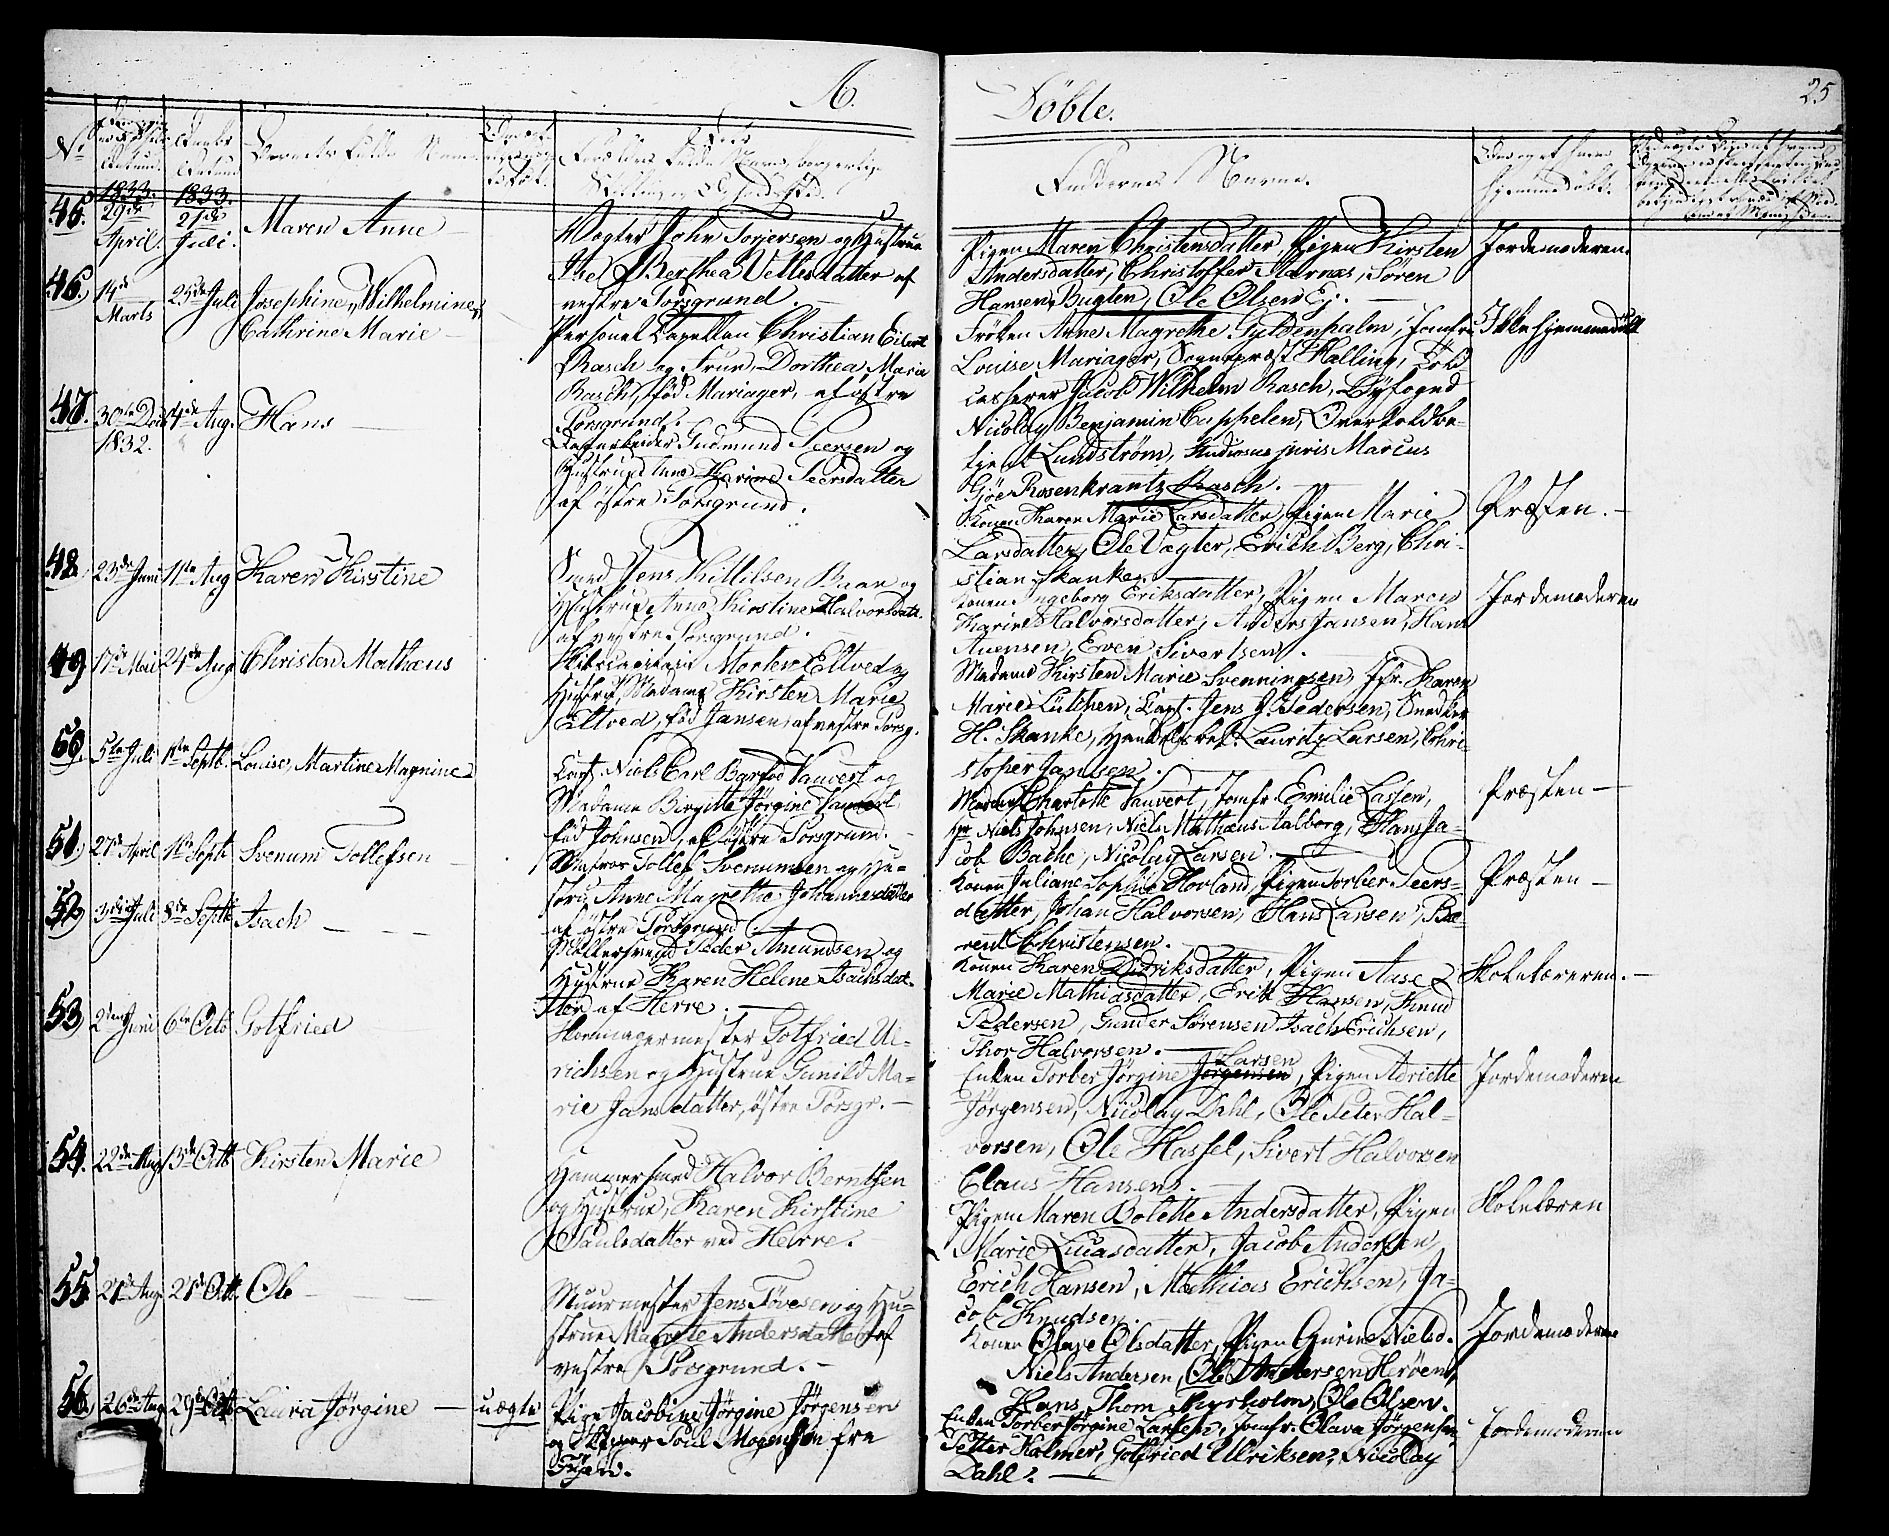 A.
Døbte.
25
No
Barnets fulde Navn
Faddernes Navne.
1833.
1833.
45. 29de April. 21de Juli. Maren Anne
Vogter John Torjersen og Hustrue
Berthea Vettesdatter af
vestre Porsgrund.
Pigen Maren Christensdatter, Pigen Kirsten
Andersdatter, Christoffer Aarnæs, Sören
Hansen Bugten, Ole Olsen Ej.
Jordemoderen.
46. 14de Marts 25de Juli Josephine, Wilhelmine,
Cathrine Marie
Personel Capellan Christian Eilert
Rasch og Frue, Dorthea Maria
Rasch, fød Mariager, af østre
Porsgrund.
Frøken Anne Magrethe Gyldenpalm, Jomfr:
Louise Mariager, Sognepræst Halling, Told
casserer Jacob Wilhelm Rasch, Byfoged
Nicolay Benjamin Cappelen, Overtoldbe-
tjent Lundstrøm, studiosus juris Marcus
Gjøe Rosenkrantz Rasch.
Ikke hjemmedöbt
47. 30te Decb 1832. 4de Aug. Hans
Dagarbeider Gudmund Seersen og
Hustrue Karine Peersdatter
af östre Porsgrund.
Konen Karen Marie Larsdatter, Pigen Marie
Larsdatter, Ole Vagter, Erich Berg, Chri-
stian Skanke.
Præsten.
48. 23de Juni 11te Aug Karen Kirstine
Jens Kittilsen Baar og
Hustrue Anne Kirstine Halvorsdatr.
af vestre Porsgrund.
Konen Ingeborg Eriksdatter, Pigen Maren
Karine Halvorsdatter, Anders Jansen, Hans
Auensen, Even Sivertsen.
Jordemoderen
49. 17de Mai 24de Aug Christen Mathæus
Skibscapitain Morten Eltved og
Hustrue Madame Kirsten Marie
Eltved, fød Jansen, af vestre Porsg.
Madame Kirsten Marie Svenningsen, Jfr. Karen
Marie Lütchen, Capt. Jens J. Pedersen, Snedker
H. Skanke, Handelsbet. Lauritz Larsen, Chri-
stoper Jansen.
50. 5te Juli 1ste Septb. Louise, Martine Magnine
Capt. Niels Carl Barfød Vauvert og
Madame Birgitte Jørgine Vauvert
fød Johnsen, af östre Porsgrund.
Madam Charlotte Vauvert, Jomfr. Emilie Lassen,
Hr. Niels Johnsen, Niels Mathæus Aalborg, Hans Ja-
cob Bache, Nicolay Larsen.
Præsten
51. 27de April 1ste Septb Svenum Tollefsen
Matros Tollef Svenumsen og Hu-
stru Anne Magrethe Johannesdatter
af östre Porsgrund.
Konen Juliane Sophie Hovland, Pigen Torber Seers-
datter, Johan Halvorsen, Hans Larsen, Bæ-
rent Christensen.
Præsten
52. 3die Juli 8de Septb Isach
Møllersvend Peder Amundsen og
Hustrue Karen Helene Isachsdat-
ter af Herre.
Konen Karen Didriksdatter, Pigen Aase
Marie Mathiasdatter, Erik Hansen, Knud
Pedersen, Gunder Sörensen Isach Erichsen,
Thor Halvorsen.
Skolelæreren.
53. 2den Juni 6te Octb Gotfried
Skomagermester Gotfried Ul-
richsen og Hustrue Gunild Ma-
rie Jansdatter, östre Porsgr.
Larsen
Enken Torber Jörgine Jørgensen, Pigen Adriette
Jörgensen, Nicolay Dahl, Ole Peter Hal-
vorsen, Ole Hassel, Sivert Halvorsen
Claus Hansen.
Jordemoderen
54. 22de Aug 13de Octb Kirsten Marie
Hammersmed Halvor Berntsen
og Hustrue, Karen Kirstine
Paulsdatter ved Herre.
Pigen Maren Bolette Andersdatter, Pigen
Marie Lucasdatter, Jacob Andersen,
Erich Hansen, Mathias Erichsen, Ja-
cob Knudsen.
Skolelæren
55. 21de Aug. 21de Octb. Ole
Muurmester Jens Töresen og Hu-
strue Magrete Andersdatter af
vestre Porsgrund.
Konen Olave Olsdatter, Pigen Gurine Nielsd.
Niels Andersen, Ole Andersen Herøen,
Hans Thom Myrholm, Ole Olsen.
Jordemoderen
56. 26de Aug 29de Octb Laura Jörgine uægte
Pige Jacobine Jörgine Jörgensen
og Poul Mogensen fra
Fyen.
Enken Torber Jörgine Larsen, Jomfr. Olava Jörgensen
Petter Kalmer, Gotfried Ulriksen, Nicolay
Dahl.
Jordemoderen